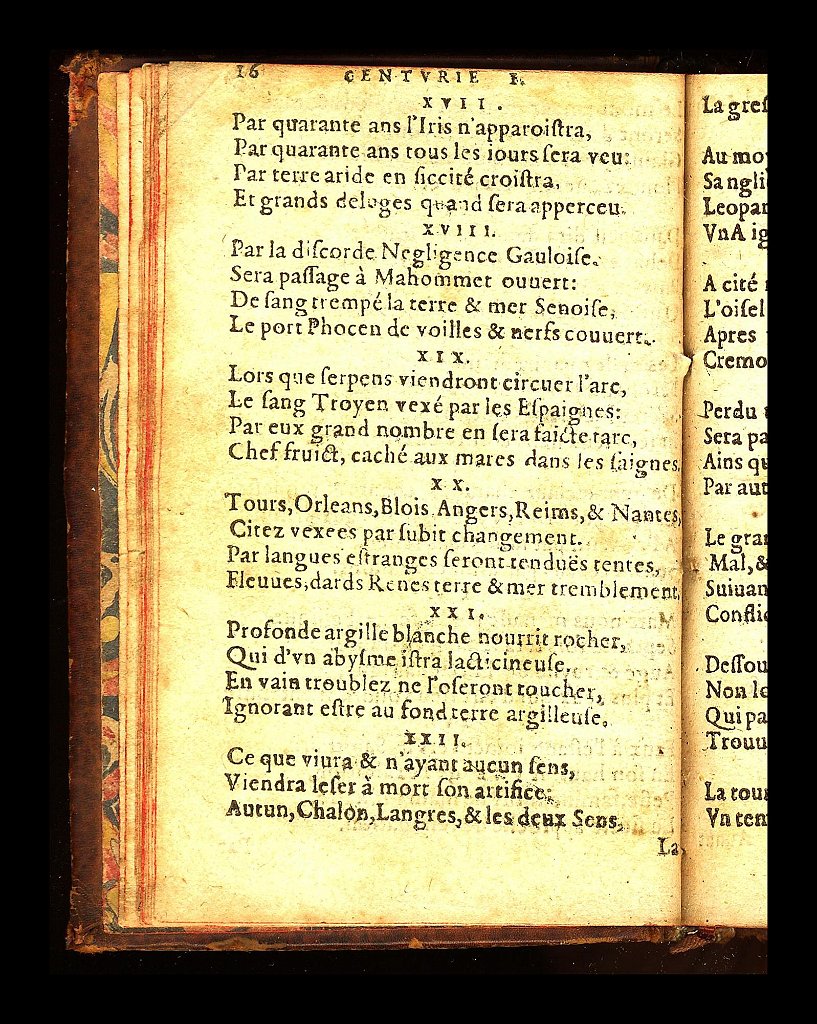 16 CENTVRIE I.
XVII.
Par quarante ans l'Iris n'apparoiſtra,
Par quarante ans tous les iours ſera veu:
Par terre aride en ſiccité croiſtra,
Et grands deluges quand ſera apperceu.
XVIII.
Par la diſcorde Negligence Gauloiſe.
Sera paſſage à Mahommet ouuert:
De ſang trempé la terre & mer Senoiſe,
Le port Phocen de voilles & nerfs couuert.
XIX.
Lors que ſerpens viendront circuer l'arc,
Le ſang Troyen vexé par les Eſpaignes:
Par eux grand nombre en ſera faicte tarc,
Chef fruict, caché aux mares dans les ſaignes.
XX.
Tours, Orleans, Blois Angers, Reims, & Nantes,
Citez vexees par ſubit changement.
Par langues eſtranges ſeront tenduës tentes,
Fleuues, dards Renes terre & mer tremblement,
XXI.
Profonde argille blanche nourrit rocher,
Qui d'vn abyſme iſtra lacticineuſe.
En vain troublez ne l'oſeront toucher,
Ignorant eſtre au fond terre argilleuſe,
XXII.
Ce que viura & n'ayant aucun ſens,
Viendra leſer à mort ſon artifice:
Autun, Chalon, Langres, & les deux Sens,
La
La greſ
Au mo
Sa ngli
Leopar
VnA ig
A cité
L'oiſel
Apres
Cremo
Perdu
Sera pa
Ains qu
Par aut
Le gra
Mal, &
Suiuan
Conflic
Deſſou
Non le
Qui pa
Trouu
La tou
Vn tem